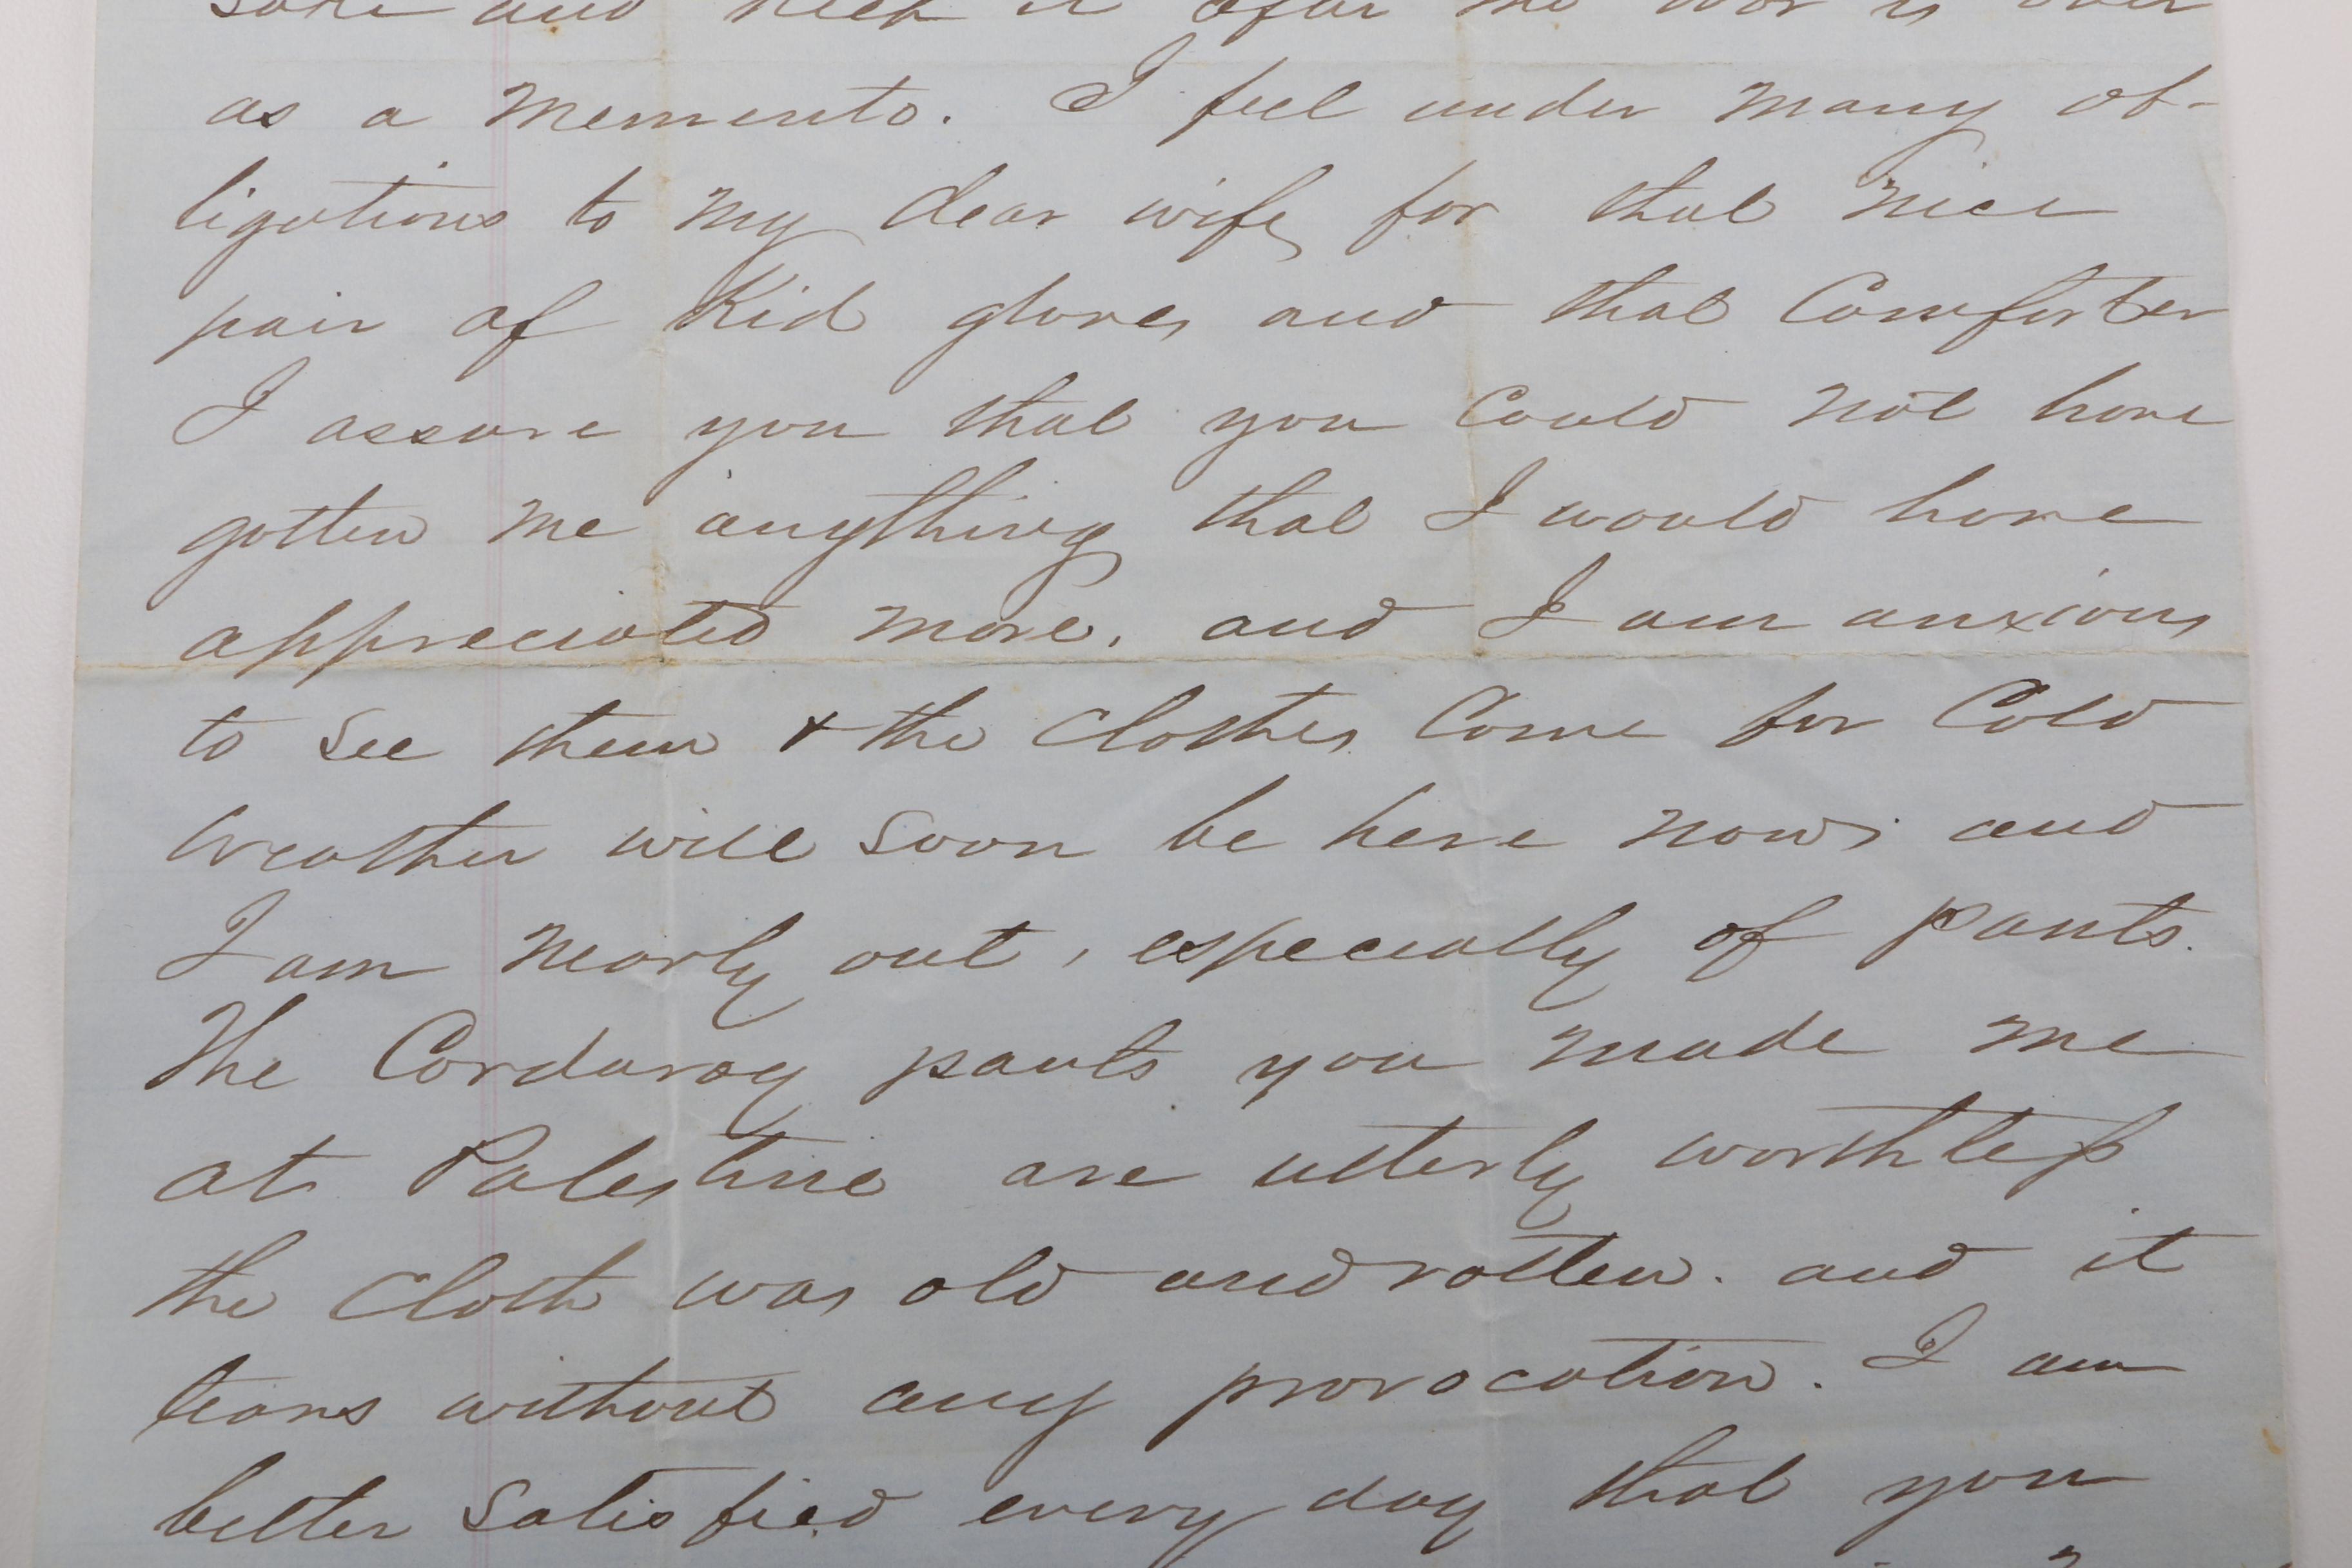 and keep it after the war is over
as a memento. I feel under many ob-
ligations to my dear wife for that nice
pair of Kid gloves and that Comforter
I assure you that you could not have
gotten me anything that I would have
appreciated more, and I am anxious
to see them & the clothes Come for Cold
weather will soon be here now; and
I am nearly out, especially of pants.
The Corduroy pants you made me
at Palestine are utterly worthless
the cloth was old and rotten. and it
tears without any provocation. I am
better satisfied every day that you